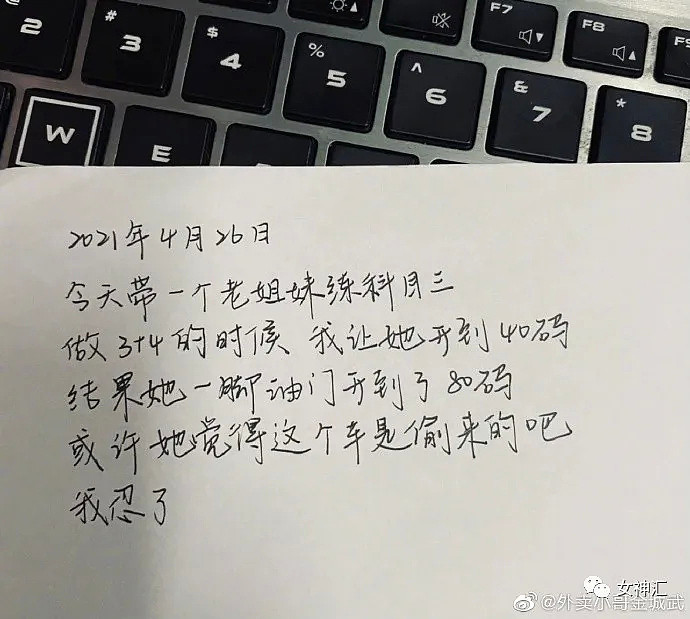 @
2
#
3
$
4
%
5
^
6
&
7
*
8
F7
F8
F9
W
E
2021年4月26日
今天带一个老姐妹练科目三
做3+4的时候、我让她开到40码
结果她一脚油门开到了80码
或许她觉得这个车是偷来的吧
我忍了
女神汇
@外卖小哥金城武